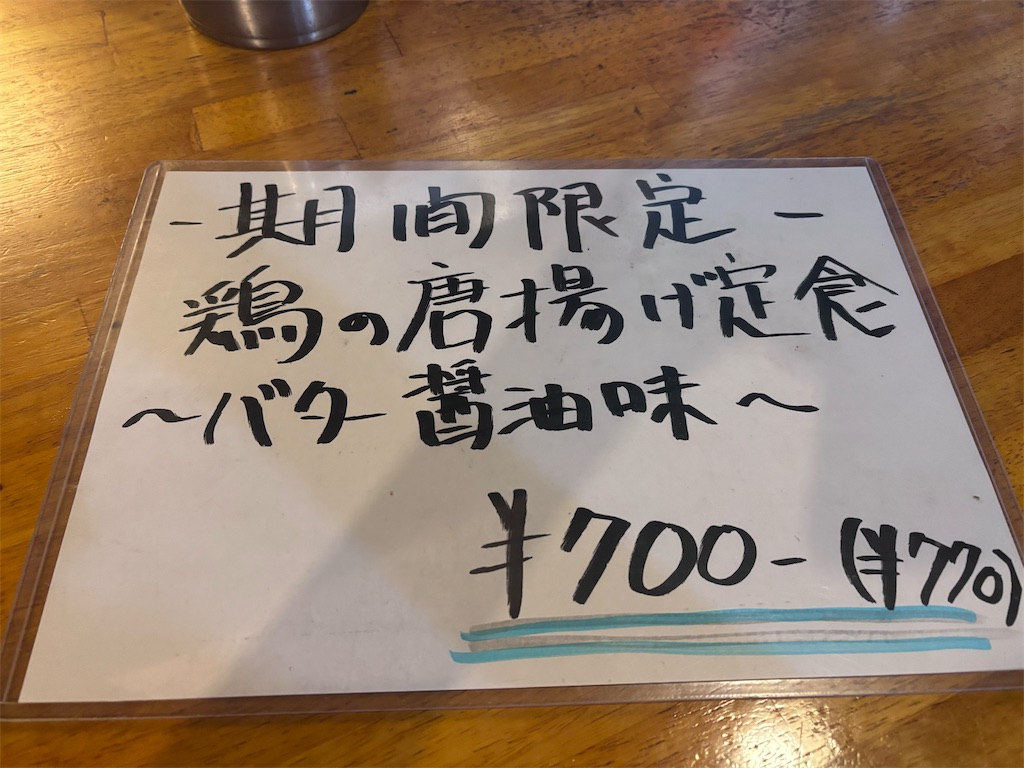 -期間限定-
鶏の唐揚げ定食
～バター醤油味～
¥700-(¥770)